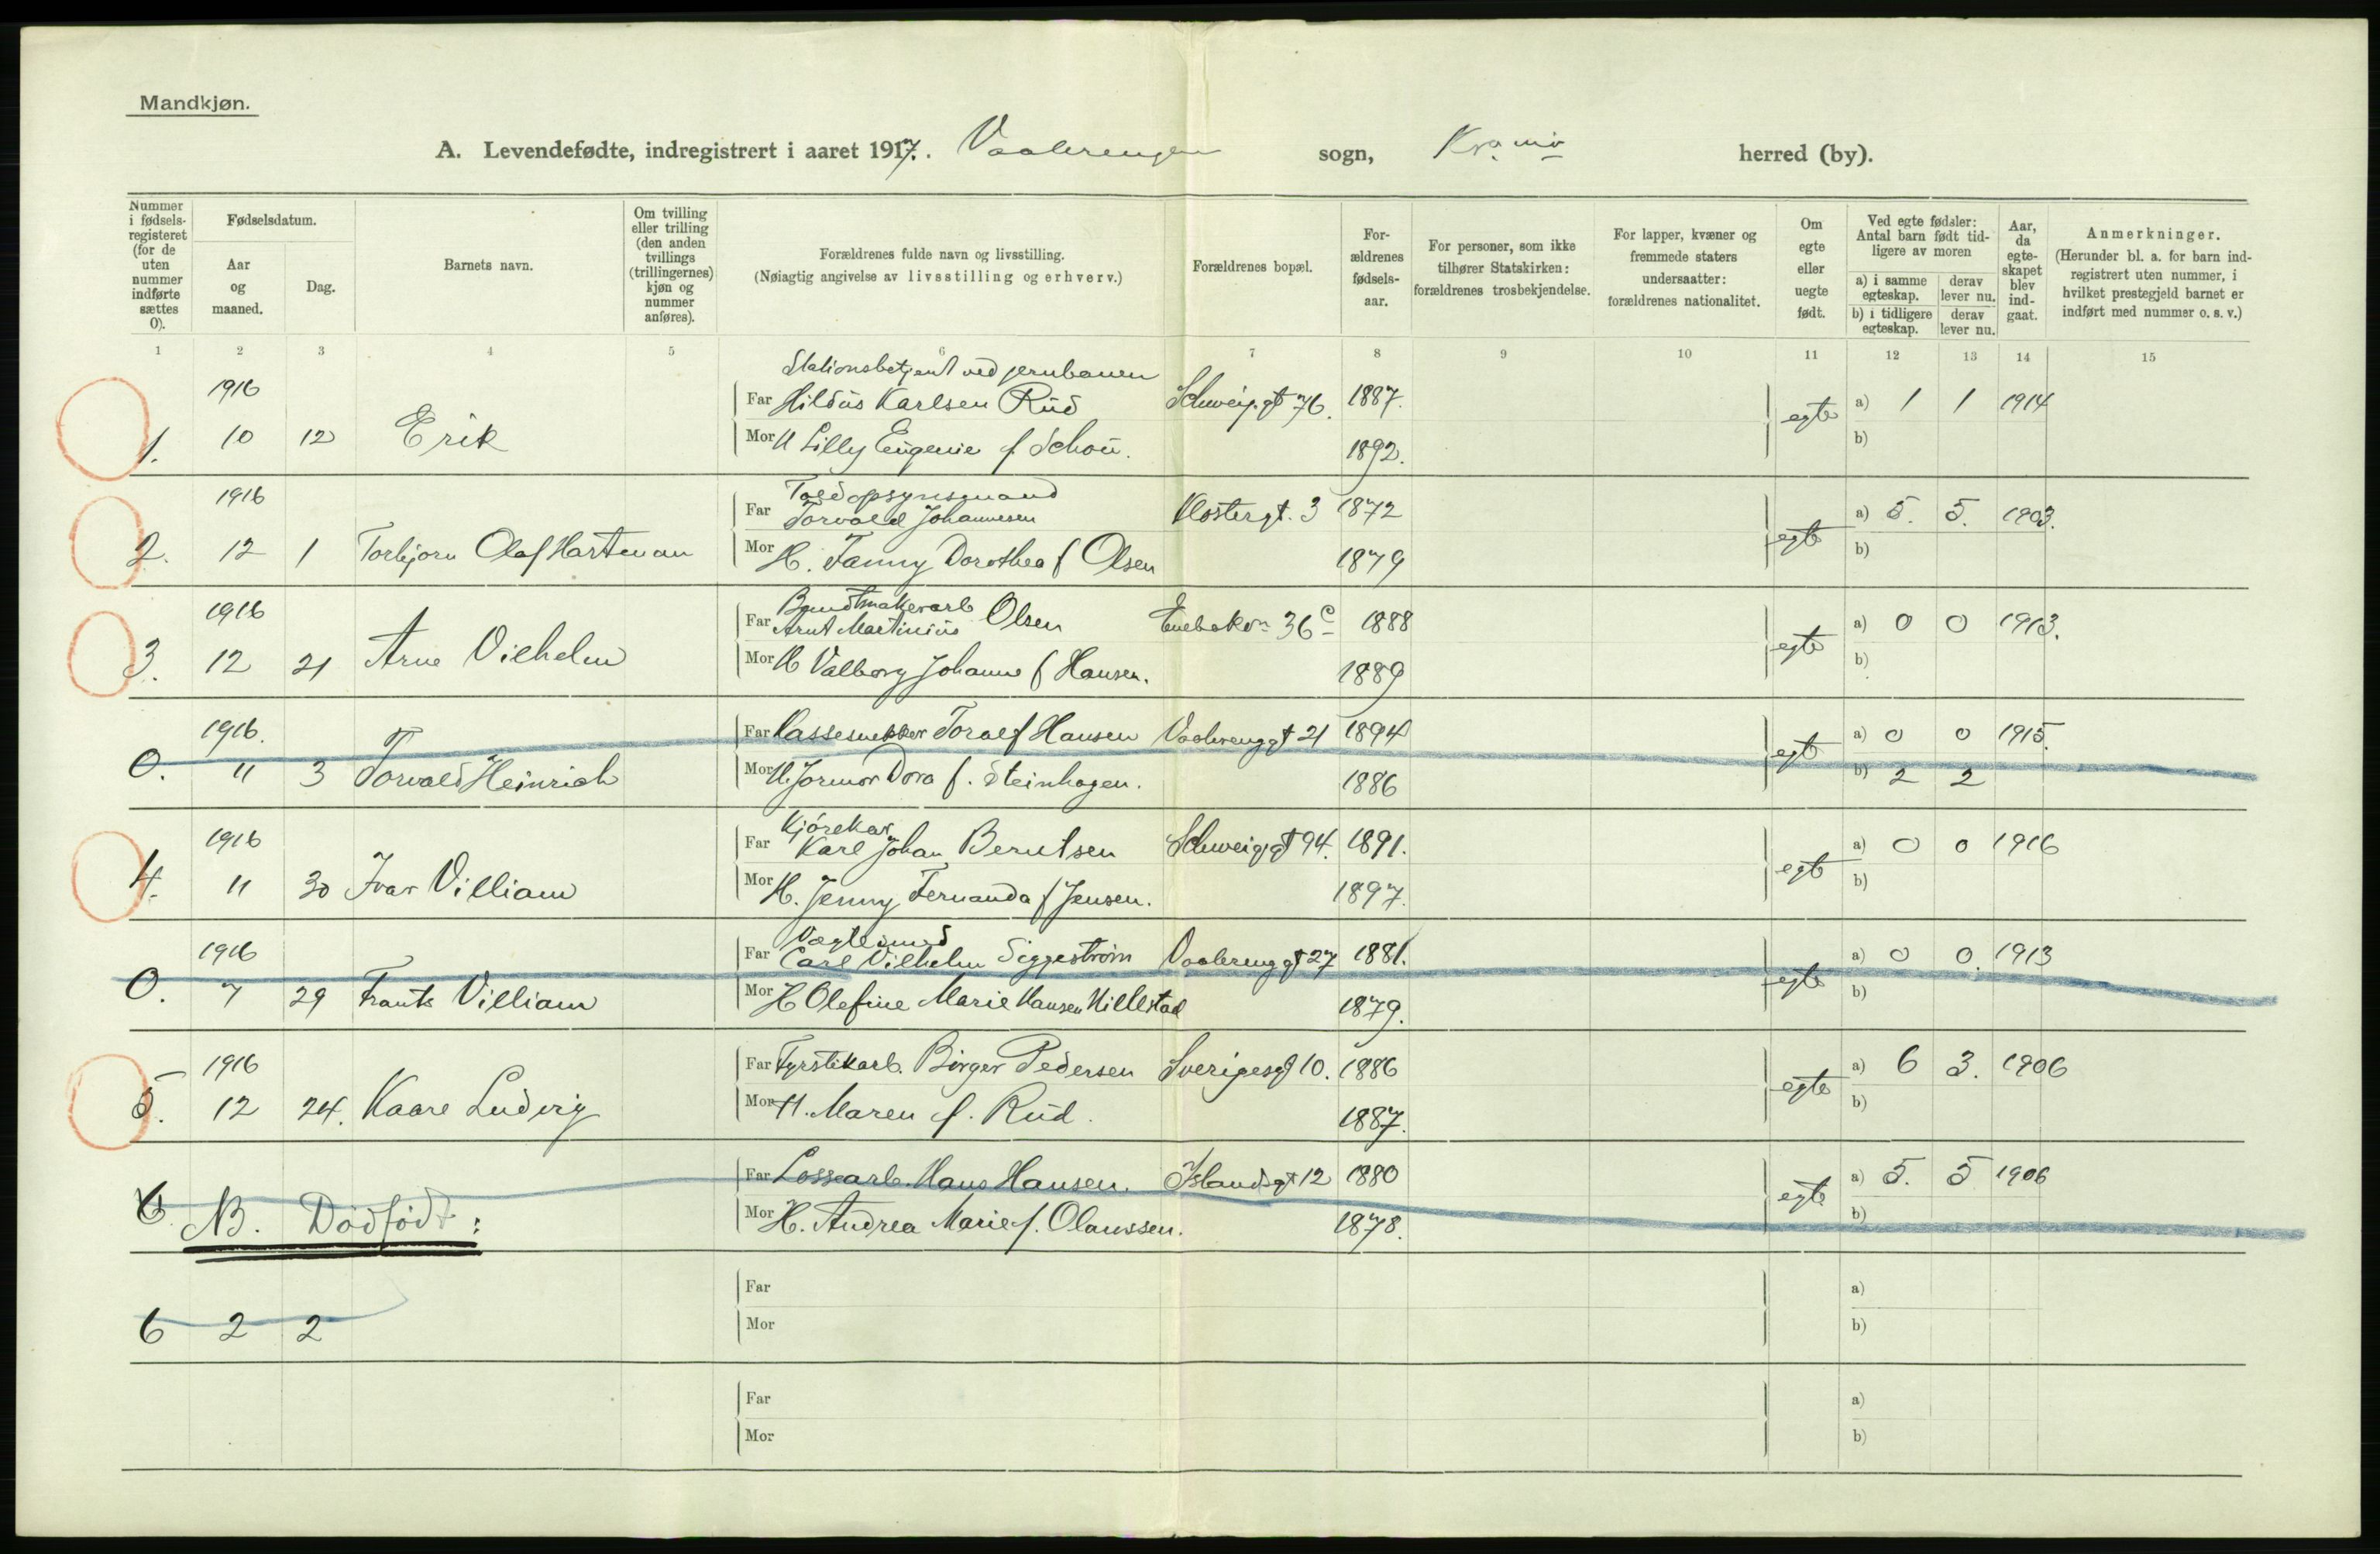 Mandkjøn.
A. Levendefødte, indregistrert i aaret 1917. Vaalerengen sogn, Kra herred (by).
Nummer i fødsels-registeret (for de uten nummer indførte sættes 0).
Fødselsdatum.
Aar og maaned.
Dag.
Barnets navn.
Om tvilling eller trilling (den anden tvillings (trillingernes) kjøn og nummer anføres).
Forældrenes fulde navn og livsstilling.
(Nøiagtig angivelse av livsstilling og erhverv.)
Forældrenes bopæl.
For-ældrenes fødsels-aar.
For personer, som ikke tilhører Statskirken: forældrenes trosbekjendelse.
For lapper, kvæner og fremmede staters undersaatter: forældrenes nationalitet.
Om egte eller uegte født.
Ved egte fødsler: Antal barn født tid-ligere av moren
a) i samme egteskap.
derav lever nu.
b) i tidligere egteskap.
derav lever nu.
Aar, da egte-skapet blev ind-gaat.
Anmerkninger.
(Herunder bl. a. for barn ind-registrert uten nummer, i hvilket prestegjeld barnet er indført med nummer o. s. v.)
1 2 3 4 5 6 7 8 9 10 11 12 13 14 15
Stationsbetjent ved jernbanen
1916 Far Hildus Karlsen Rud Schweig.gt 76. 1887. egte a) 1 1 1914
1. 10 12 Erik Mor H Lilly Eugenie f Schou. 1892. b)
Toldopsynsmand
1916 Far Torvald Johannesen Klostergt. 3 1872 egte a) 5. 5. 1903.
2. 12 1 Torbjorn Olaf Hartman Mor H. Fanny Dorothea f Olsen 1879 b)
Bundtmakerarb
1916 Far Arnt Martinius Olsen Enebakv 36c 1888 egte a) 0 0 1913.
3. 12 21 Arne Vilhelm Mor H Valborg Johanne f Hansen. 1889 b)
1916. Far Kassesnekker Toralf Hansen Vaalerenggt 21 1894 egte a) 0 0 1915.
0. 11 3 Torvald Heinrich Mor H. Jormor Dora f. Steinhagen. 1886 b) 2 2
Kjörekar
1916 Far Karl Johan Berntsen Schweiggt 94. 1891. egte a) 0 0 1916
4. 11 30 Ivar Villiam Mor H. Jenny Fernanda f Jensen. 1897. b)
Vegtesmed
1916 Far Carl Vilhelm Siggeström Vaalerenggt 27 1881. egte a) 0 0. 1913
0. 7 29 Frants Villiam Mor H Olefine Marie Hansen Hillestad 1879. b)
1916 Far Fyrstikarb. Birger Pedersen Sverigesgt 10. 1886 egte a) 6 3. 1906
5. 12 24. Kaare Ludvig Mor H. Maren f. Rud. 1887. b)
Far Lossearb. Hans Hansen. Islandsgt 12 1880 egte a) 5. 5 1906
6. NB. Dödfödt: Mor H. Andrea Marie f. Olaussen. 1878. b)
Far a)
6 2 2 Mor b)
Far a)
Mor b)